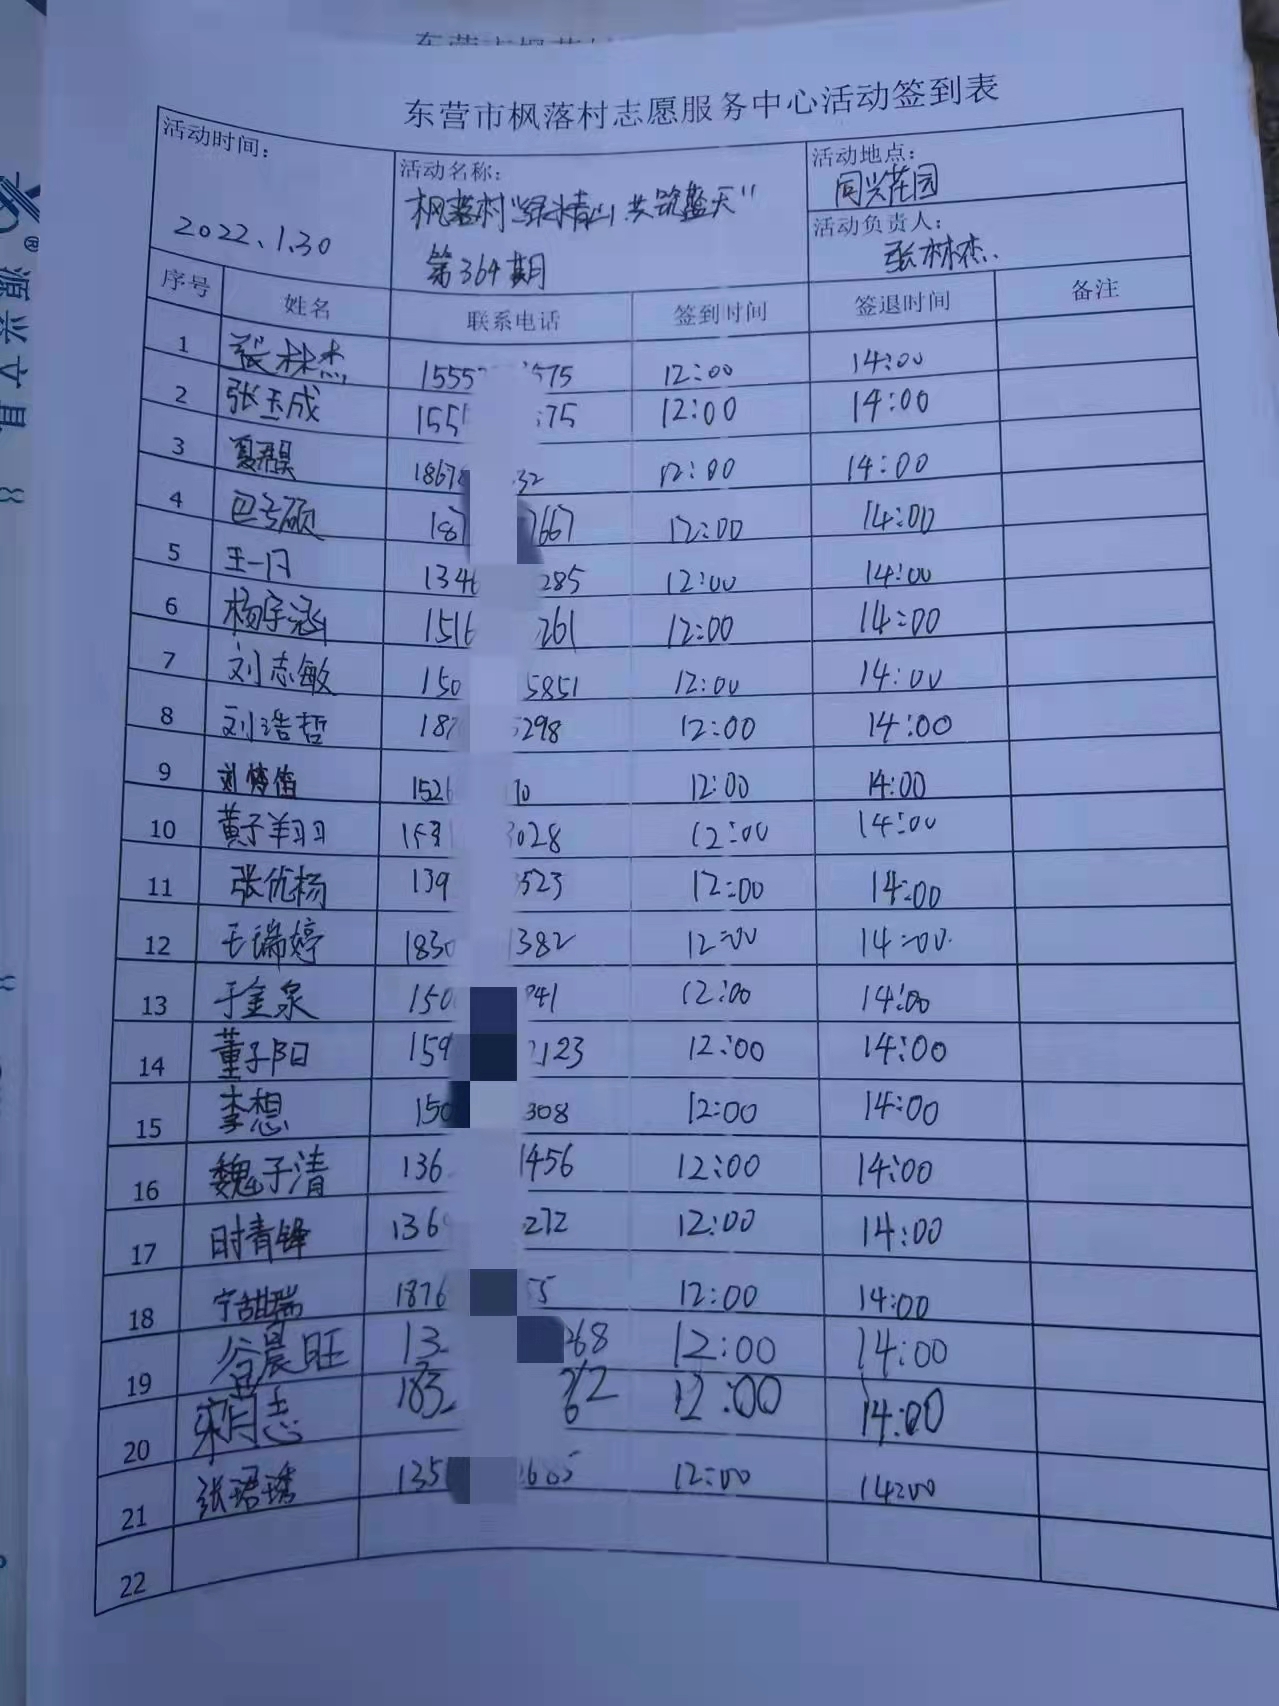 东营市枫落村志愿服务中心活动签到表
活动时间：
2022.1.30
活动名称：
枫落村“绿水青山 共筑蓝天”
第364期
活动地点：
同兴花园
活动负责人：
张林杰
序号 姓名 联系电话 签到时间 签退时间 备注
1 张林杰 1555 575 12:00 14:00
2 张玉成 155 75 12:00 14:00
3 1867 32 12:00 14:00
4 187 7667 12:00 14:00
5 王一 134 285 12:00 14:00
6 杨宇涵 1516 261 12:00 14:00
7 刘志敏 150 5851 12:00 14:00
8 刘浩哲 187 298 12:00 14:00
9 刘 1526 70 12:00 14:00
10 黄子翔 153 3028 12:00 14:00
11 张优杨 139 523 12:00 14:00
12 王瑞婷 1830 1382 12:00 14:00
13 于金泉 150 941 12:00 14:00
14 董子阳 159 2123 12:00 14:00
15 李想 150 308 12:00 14:00
16 魏子清 136 1456 12:00 14:00
17 时青锋 136 272 12:00 14:00
18 宁甜瑞 1876 55 12:00 14:00
19 谷晨旺 13 268 12:00 14:00
20 宋月志 183 62 12:00 14:00
21 张珺琇 135 2685 12:00 14:00
22
源兴文具